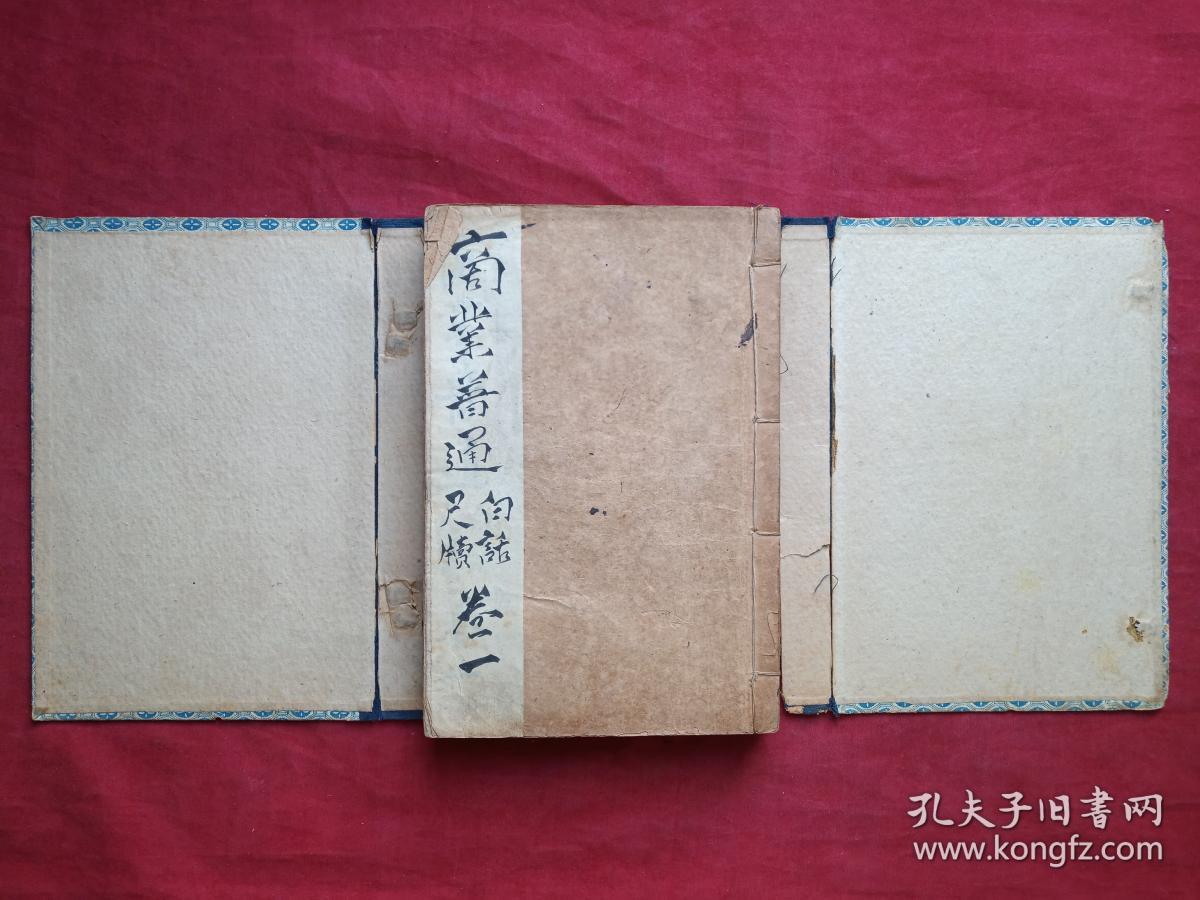 商業普通
白話
尺牘
卷一
孔夫子旧書网
www.kongfz.com